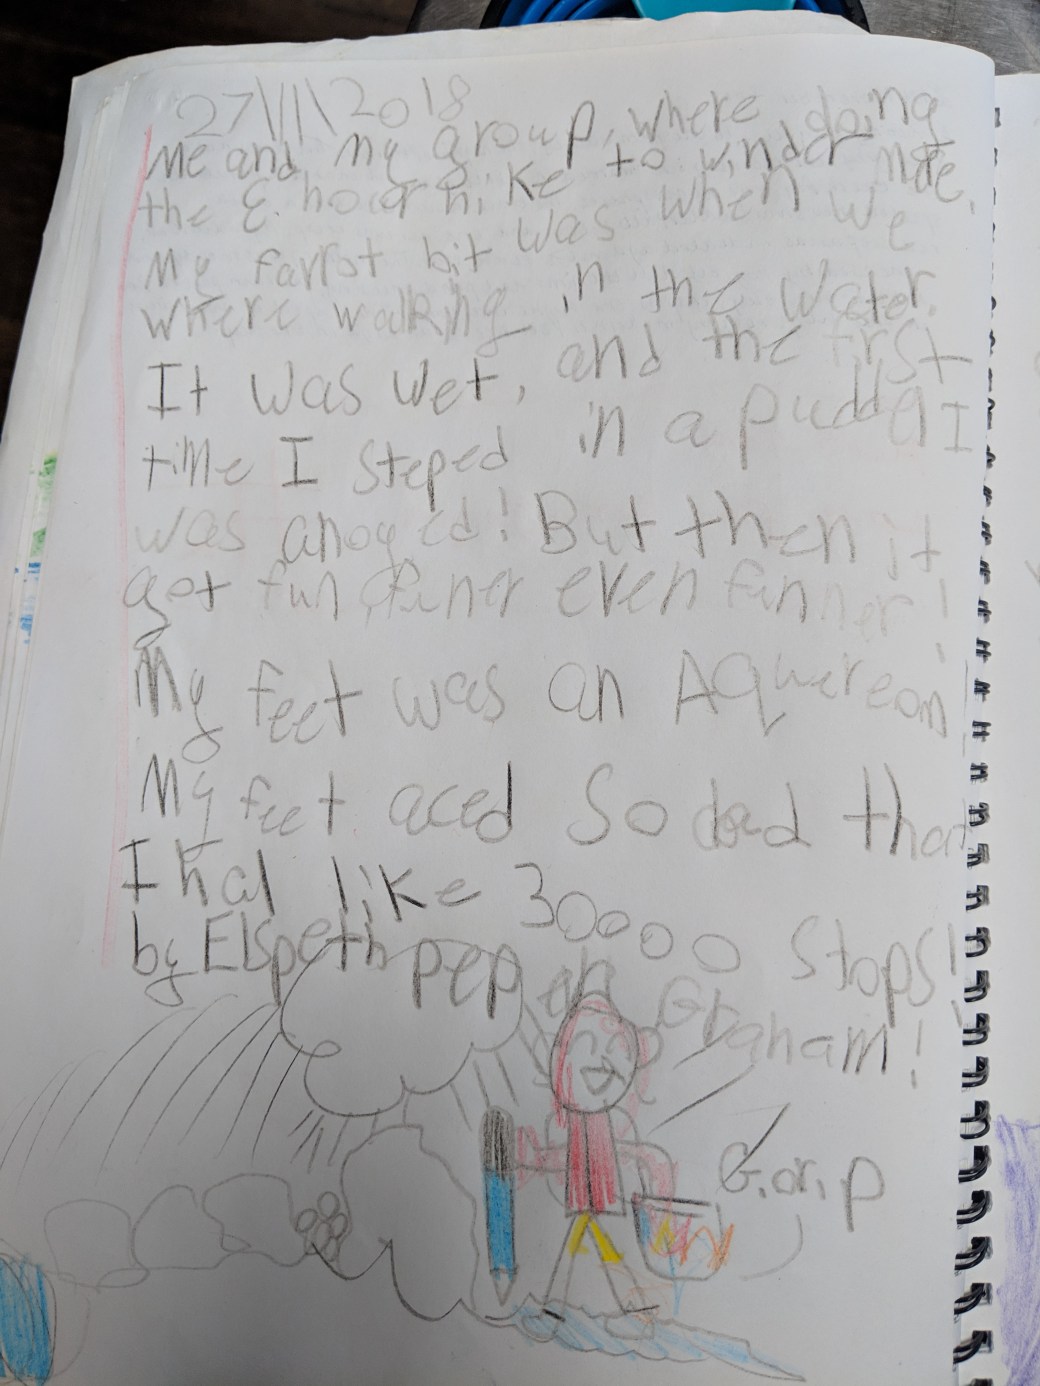 27\11\2018
Me and my group, where doing
the 8. hour hike to winder mere.
My farrot bit was when we
where walking in the water.
It was wet, and the first
time I steped in a puddel I
was anoyed! But then it
got fun funer even funner!
My feet was an Aquareom!
My feet aced so dad that
I had like 30000 stops!
by Elspeth pep en Graham!
G.or.p